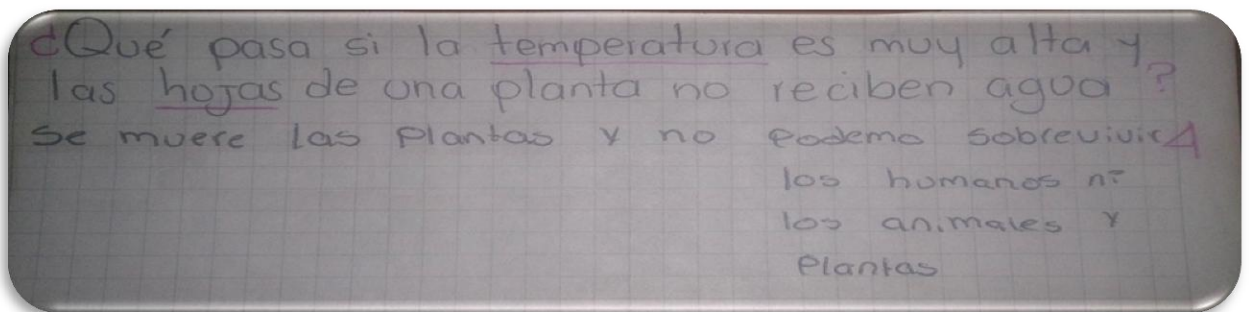 ¿Qué pasa si la temperatura es muy alta y
las hojas de una planta no reciben agua?
se muere las plantas y no podemo sobrevivir
los humanos ni
los animales y
plantas